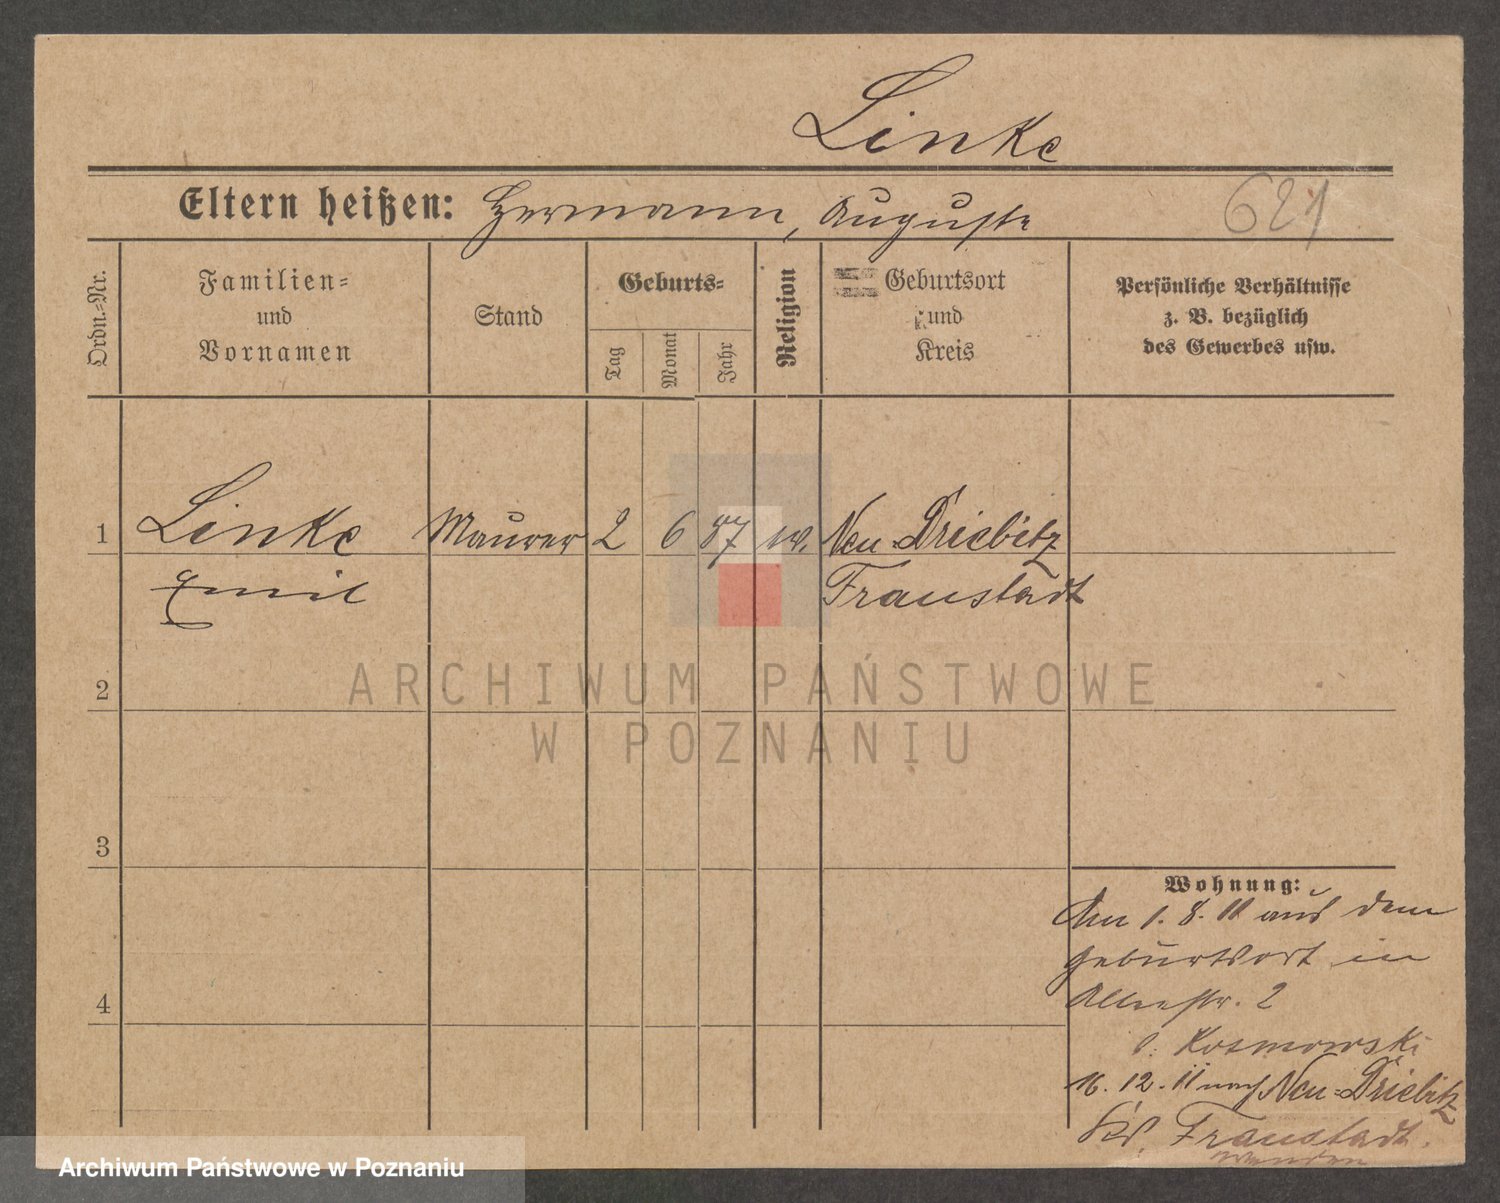 Linke
Eltern heißen: Hermann, Auguste
621
Ordn.-Nr.
Familien=
und
Vornamen
Stand
Geburts=
Tag
Monat
Jahr
Religion
Geburtsort
und
Kreis
Persönliche Verhältnisse
z. B. bezüglich
des Gewerbes usw.
1 Linke Maurer 2 6 87 w. Neu-Driebitz
Emil Fraustadt
ARCHIWUM PAŃSTWOWE
W POZNANIU
2
3
4
Wohnung:
Am 1. 8. 11 aus dem
Geburtsort in
2
b. Kosmowski
16. 12. 11 nach Neu-Driebitz
Kr. Fraustadt.
wenden
Archiwum Państwowe w Poznaniu